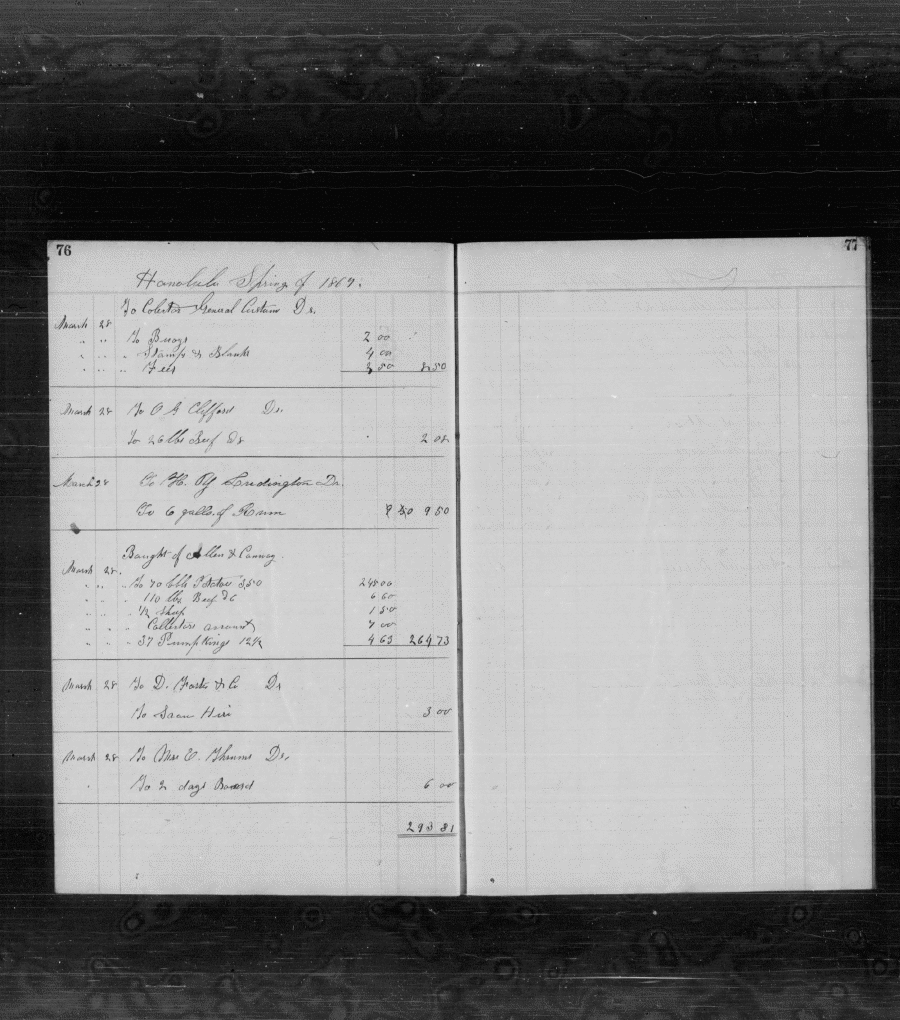 76
77
Honolulu Spring of 1867.
To Colector General Custum Dr.
March 28
" " To Buoys 2 00
" " " Stamps & Blanks 4 00
" " " Fees 2 50 8 50
March 28 To O Clifford Dr.
To 26 lbs Beef 08 2 08
March 28 To H. Credington Dr.
To 6 galls. of Rum 9 50
Bought of Allen & Conway
March 28.
" " " To 70 bbls Potatoe 3,50 245 00
" " " 110 lbs Beef 06 6 60
" " " 1/2 Sheep 1 50
" " " Collectors account 7 00
" " " 37 Pumpkings 12 1/2 4 63 264 73
March 28 To D. Foster & Co Dr
To Saam Hire 3 00
March 28 To Mrs C. Dr.
" To 2 days Board 6 00
293 81